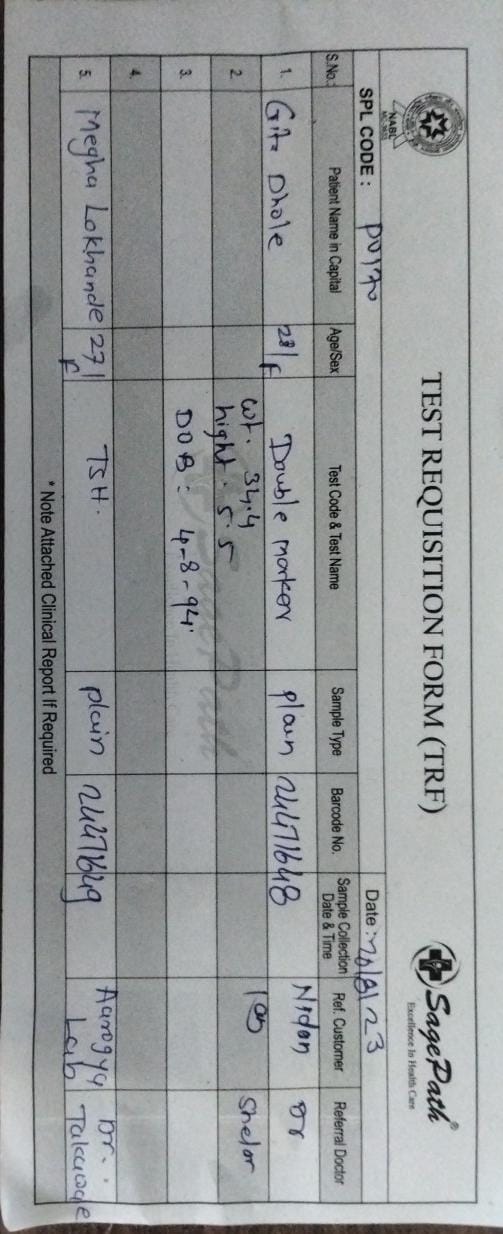 NABL
TEST REQUISITION FORM (TRF)
SagePath®
Excellence In Health Care
SPL CODE : PU170
Date : 20/8/23
S.No. Patient Name in Capital Age/Sex Test Code & Test Name Sample Type Barcode No. Sample Collection Date & Time Ref. Customer Referral Doctor
1. Gita Dhole 28/F Double marker plain 24471648 Nidan Dr
2. wt. 34.4 lab Shelar
hight. 5.5
3. DOB : 4-8-94
4.
5. Megha Lokhande 27/F TSH. plain 24471649 Aarogya Lab Dr. Takawale
* Note Attached Clinical Report If Required